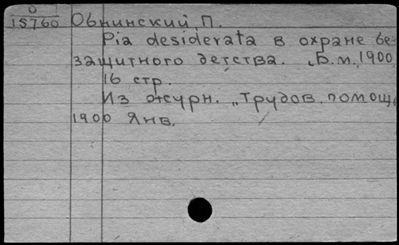 0
15760
Обнинский, П.
Pia desiderata в охране без-
защитного детства. Б.м., 1900
16 стр.
Из журн. „Трудов. помощ„
1900 Янв.